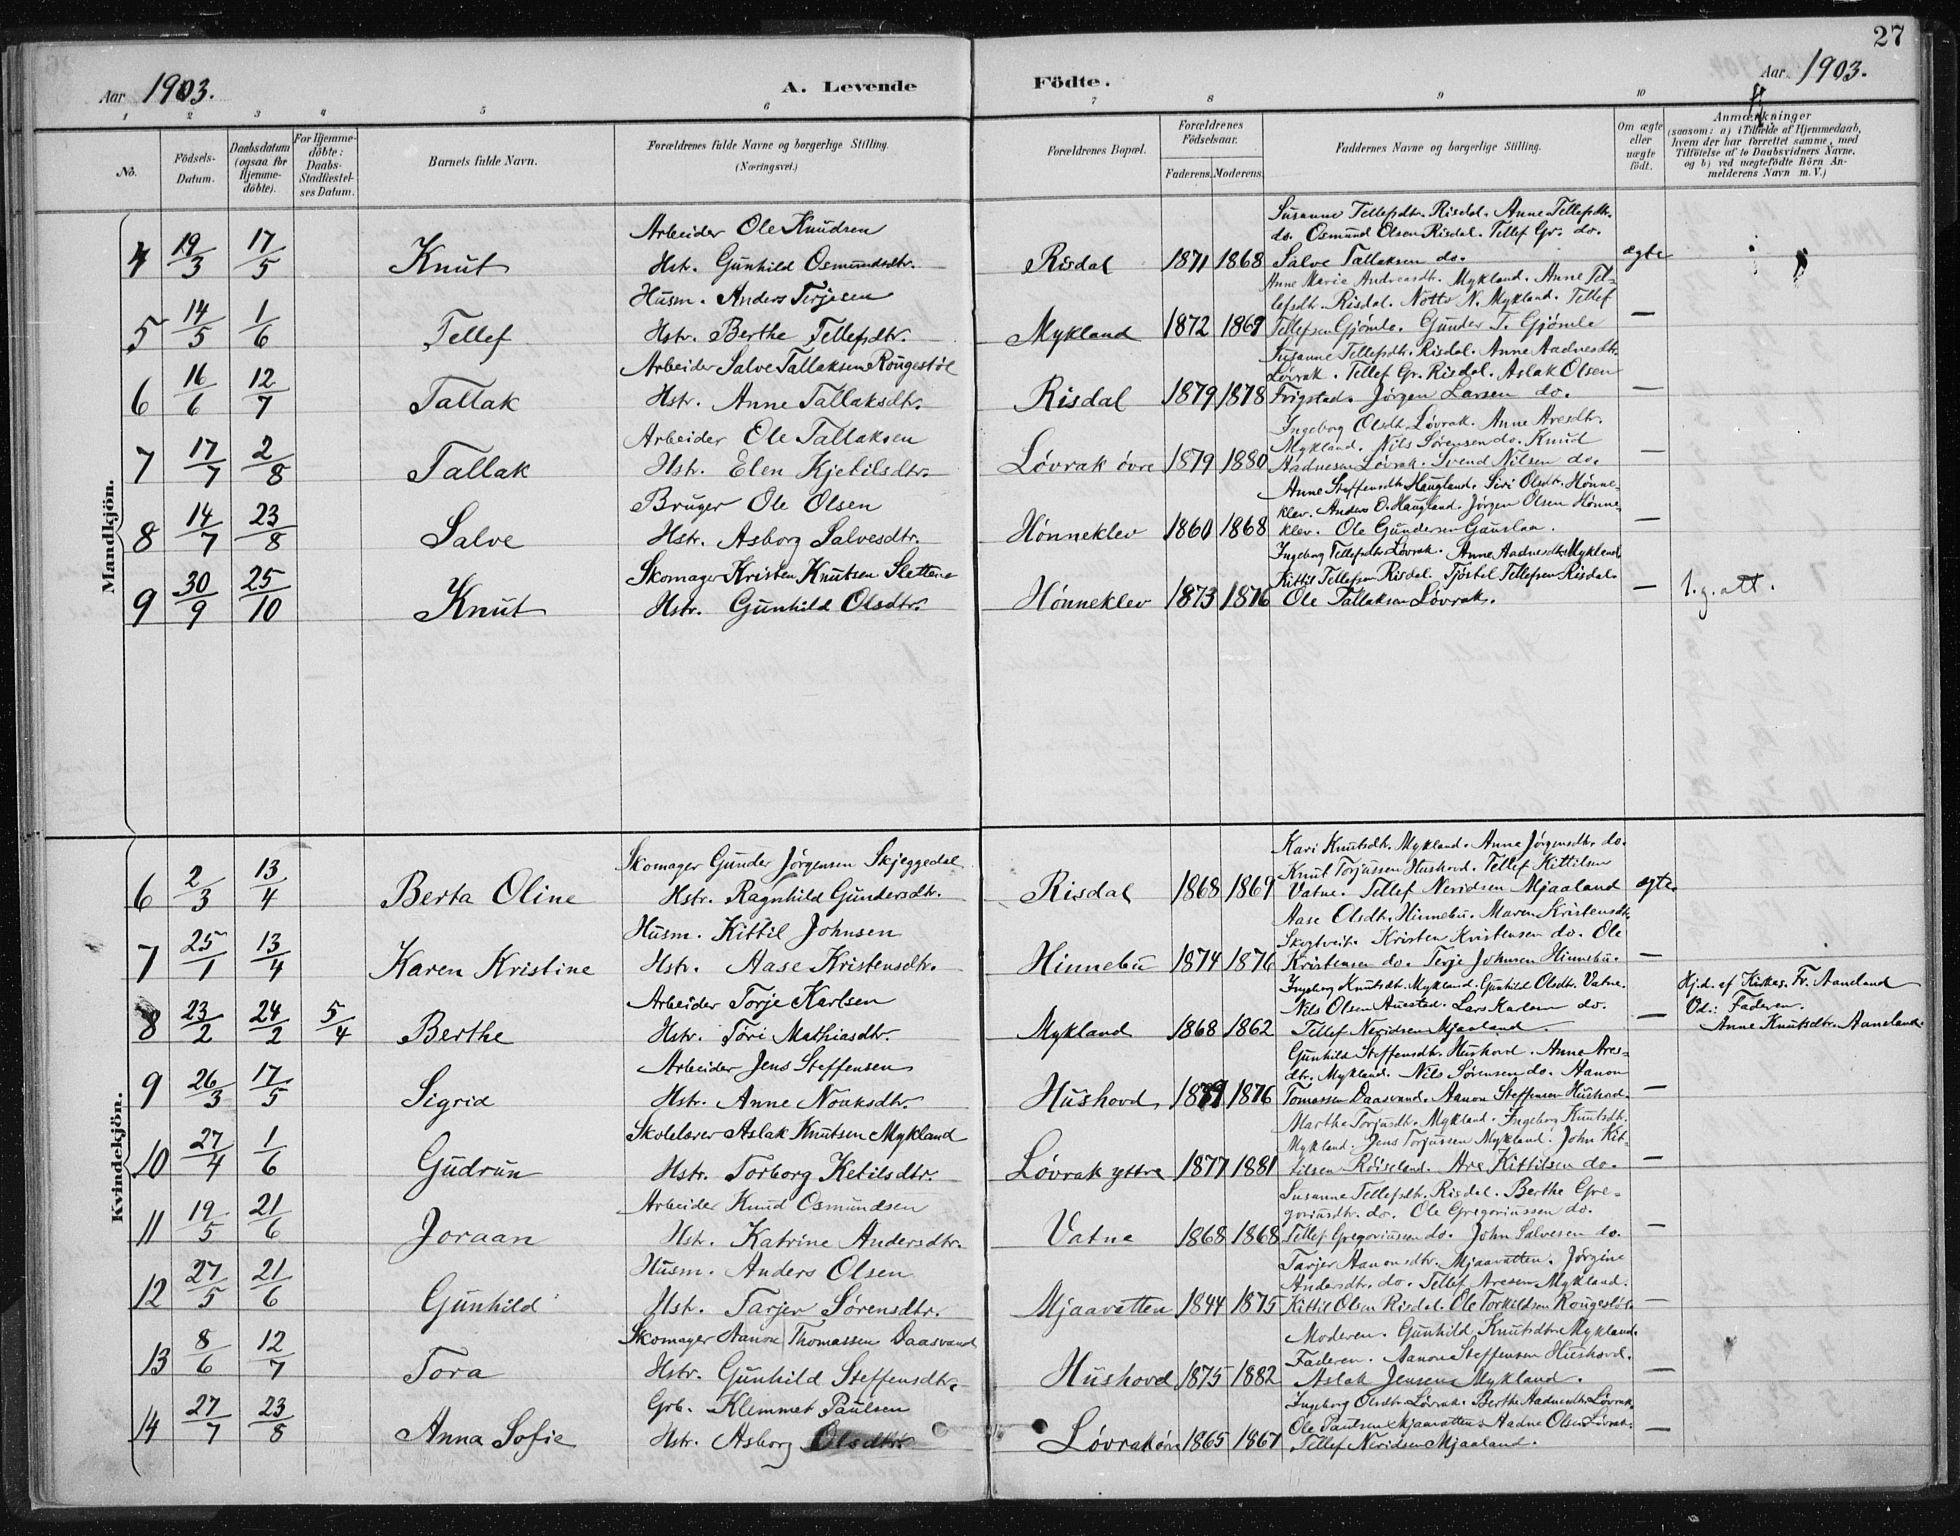 27
Aar 1903.
A. Levende
Födte.
Aar 1903.
1 2 3 4 5 6 7 8 9 10
No.
Födsels-Datum.
Daabsdatum (ogsaa for Hjemme-døbte).
For Hjemme-döbte: Daabs-Stadfæstelses Datum.
Barnets fulde Navn.
Forældrenes fulde Navne og borgerlige Stilling. (Næringsvei.)
Forældrenes Bopæl.
Forældrenes Födselsaar.
Faderens. Moderens.
Faddernes Navne og borgerlige Stilling.
Om ægte eller uægte födt.
Anmærkninger
(saasom: a) i Tilfælde af Hjemmedaab, hvem der har forrettet samme, med Tilföielse af to Daabsvidners Navne, og b) ved uægtefödte Börn Anmelderens Navn m. V.)
Mandkjön.
Susanne Tellefsdtr. Risdal. Anne Tellefsdtr.
Arbeider Ole Knudsen
do. Osmund Olsen Risdal. Tellef Gr. do.
4 19/3 17/5 Knut Hstr. Gunhild Osmundsdtr. Risdal 1871 1868 Salve Tallaksen do. ægte
Anne Marie Andreasdtr. Mykland. Anne Tel-
Husm. Anders Terjesen
lefsdtr. Risdal. Notto N. Mykland. Tellef
5 14/5 1/6 Tellef Hstr. Berthe Tellefsdtr. Mykland 1872 1869 Tellefsen Gjömle. Gunder T. Gjömle —
Susanne Tellefsdtr. Risdal. Anne Aadnesdtr.
Arbeider Salve Tallaksen Rougestöl
Lövrak. Tellef Gr. Risdal. Aslak Olsen
6 16/6 12/7 Tallak Hstr. Anne Tallaksdtr. Risdal 1879 1878 Frigstad. Jørgen Larsen do. —
Ingeborg Olsdtr. Lövrak. Anne Aresdtr.
Arbeider Ole Tallaksen
Mykland. Nils Sørensen do. Knud
7 17/7 2/8 Tallak Hstr. Elen Kjetilsdtr. Lövrak övre 1879 1880 Aadnesen Lövrak. Svend Nilsen do. —
Anne Steffensdtr. Haugland. Siri Olsdtr. Hönne-
Bruger Ole Olsen
klev. Anders O. Haugland. Jörgen Olsen Hönne-
8 14/7 23/8 Salve Hstr. Asborg Salvesdtr. Hönneklev 1860 1868 klev. Ole Gundersen Gauslaa. —
Ingeborg Tellefsdtr. Lövrak. Anne Aadnesdtr. Mykland.
Skomager Kristen Knutsen Slettene
Kittil Tellefsen Risdal. Tjöstel Tellefsen Risdal.
9 30/9 25/10 Knut Hstr. Gunhild Olsdtr. Hönneklev 1873 1876 Ole Tallaksen Lövrak. — 1. g. att.
Kvindekjön.
Kari Knutsdtr. Mykland. Anne Jörgensdtr. do.
Skomager Gunder Jörgensen Skjeggedal
Knut Torjussen Hushovd. Tellef Kittilsen
6 2/3 13/4 Berta Oline Hstr. Ragnhild Gundersdtr. Risdal 1868 1869 Vatne. Tellef Neridsen Mjaaland ægte
Aase Olsdtr. Hinnebu. Maren Kristensdtr.
Husm. Kittil Johnsen
Skogtveit. Kristen Kristensen do. Ole
7 25/1 13/4 Karen Kristine Hstr. Aase Kristensdtr. Hinnebu 1874 1876 Kristensen do. Terje Johnsen Hinnebu. —
Ingeborg Knutsdtr. Mykland. Gunhild Olsdtr. Vatne. Hj.d. af Kirkes. Fr. Aaneland
Arbeider Torje Karlsen
Nils Olsen Austad. Lars Karlsen do. Od.: Faderen.
8 23/2 24/2 5/4 Berthe Hstr. Töri Mathiasdtr. Mykland 1868 1862 Tellef Neridsen Mjaaland. — Anne Knutsdtr. Aaneland.
Gunhild Steffensdtr. Hushovd. Anne Ares-
Arbeider Jens Steffensen
dtr. Mykland. Nils Sørensen do. Aanon
9 26/3 17/5 Sigrid Hstr. Anne Nonksdtr. Hushovd, 1879 1876 Tomassen Daasvand. Aanon Steffensen Hushovd. —
Marthe Torjusdtr. Mykland. Ingeborg Knutsdtr.
Skolelærer Aslak Knutsen Mykland
Mykland. Jens Torjussen Mykland. John Kit-
10 27/4 1/6 Gudrun Hstr. Torborg Ketilsdtr. Lövrak yttre 1877 1881 tilsen Röiseland. Are Kittilsen do. —
Susanne Tellefsdtr. Risdal. Berthe Gre-
Arbeider Knud Osmundsen
goriusdtr. do. Ole Gregoriussen do.
11 19/5 21/6 Joraan Hstr. Katrine Andersdtr. Vatne 1868 1868 Tellef Gregoriussen do. John Salvesen do. —
Tarjer Aanonsdtr. Mjaavatten. Jörgine
Husm. Anders Olsen
Andersdtr. do. Tellef Aresen Mykland.
12 27/5 21/6 Gunhild Hstr. Tarjer Sörensdtr. Mjaavatten 1844 1875 Kittil Olsen Risdal. Ole Torkildsen Rougestöl. —
Moderen. Gunhild Knutsdtr. Mykland.
Skomager Aanon Thomassen Daasvand
Faderen. Aanon Steffensen Hushovd.
13 8/6 12/7 Tora Hstr. Gunhild Steffensdtr. Hushovd 1875 1882 Aslak Jensen Mykland. —
Ingeborg Olsdtr. Lövrak. Berthe Aadnesdtr. Lövrak.
Grb. Klemmet Paulsen
Ole Paulsen Mjaavatten. Aadne Olsen Lövrak.
14 27/7 23/8 Anna Sofie Hstr. Asborg Olsdtr. Lövrak övre 1865 1867 Tellef Neridsen Mjaaland. —